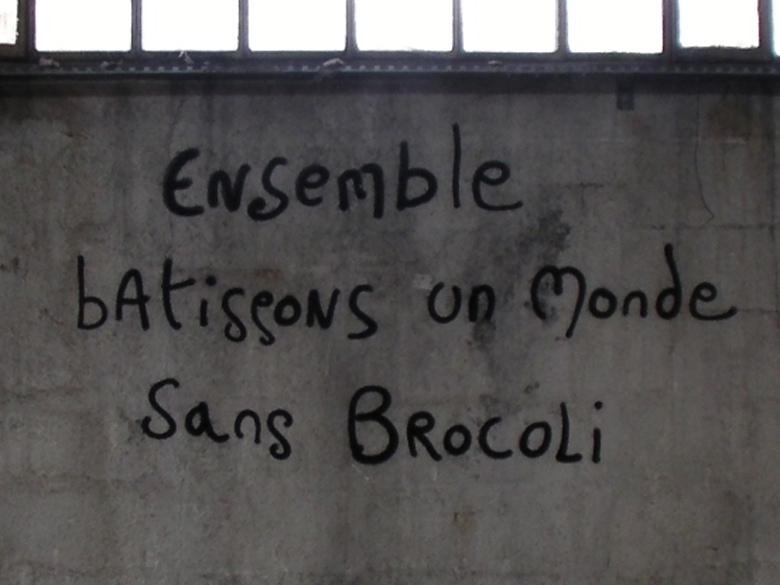 Ensemble
bAtissons un Monde
Sans BROCOLi